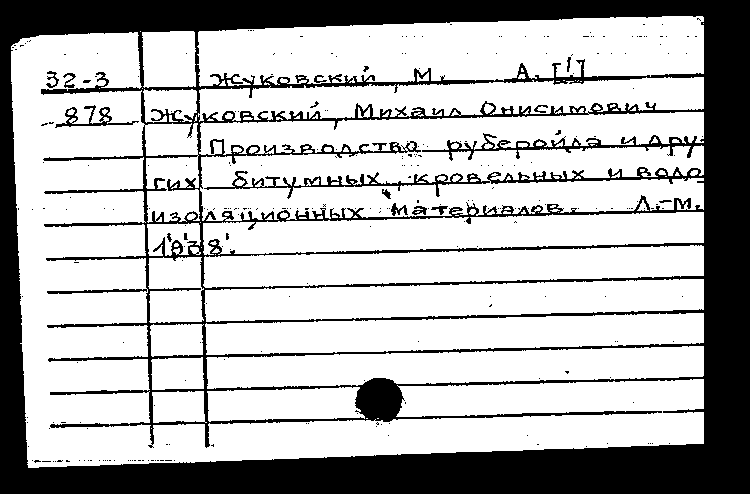 32-3 Жуковский, М. А. [!]
878 Жуковский, Михаил Онисимович
Производство руберойда и дру-
гих битумных, кровельных и водо
изоляционных материалов. Л.-М.
1938.